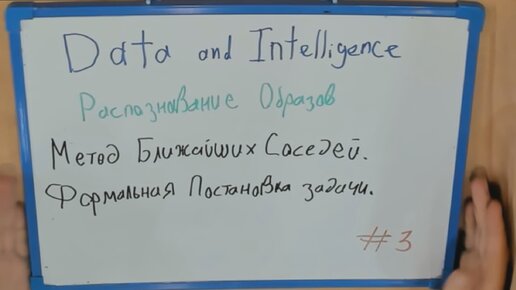 Data and Intelligence
Распознавание Образов
Метод Ближайших Соседей.
Формальная Постановка задачи.
#3